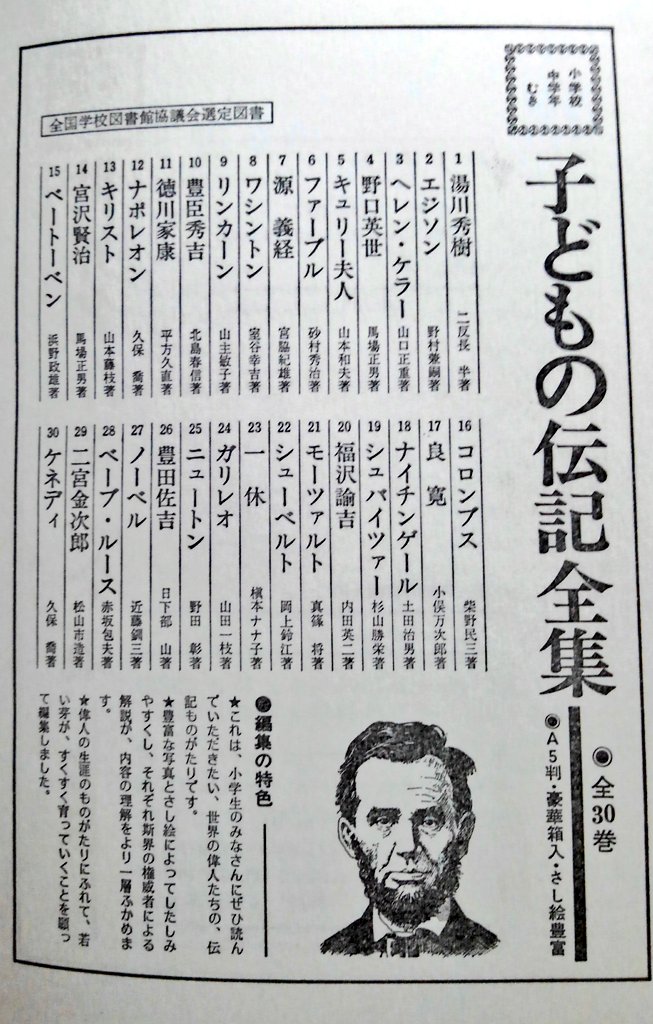 小学校
中学年
むき
子どもの伝記全集
●全30巻
●A5判・豪華箱入・さし絵豊富
全国学校図書館協議会選定図書
1 湯川秀樹 二反長 半著
2 エジソン 野村兼嗣著
3 ヘレン・ケラー 山口正重著
4 野口英世 馬場正男著
5 キュリー夫人 山本和夫著
6 ファーブル 砂村秀治著
7 源 義経 宮脇紀雄著
8 ワシントン 室谷幸吉著
9 リンカーン 山主敏子著
10 豊臣秀吉 北島春信著
11 徳川家康 平方久直著
12 ナポレオン 久保 喬著
13 キリスト 山本藤枝著
14 宮沢賢治 馬場正男著
15 ベートーベン 浜野政雄著
16 コロンブス 柴野民三著
17 良 寛 小俣万次郎著
18 ナイチンゲール 土田治男著
19 シュバイツァー 杉山勝栄著
20 福沢諭吉 内田英二著
21 モーツァルト 真篠 将著
22 シューベルト 岡上鈴江著
23 一 休 槇本ナナ子著
24 ガリレオ 山田一枝著
25 ニュートン 野田 彰著
26 豊田佐吉 日下部 山著
27 ノーベル 近藤釧三著
28 ベーブ・ルース 赤坂包夫著
29 二宮金次郎 松山市造著
30 ケネディ 久保 喬著
●編集の特色
★これは、小学生のみなさんにぜひ読ん
でいただきたい、世界の偉人たちの、伝
記ものがたりです。
★豊富な写真とさし絵によってしたしみ
やすくし、それぞれ斯界の権威者による
解説が、内容の理解をより一層ふかめま
す。
★偉人の生涯のものがたりにふれて、若
い芽が、すくすく育っていくことを願っ
て編集しました。